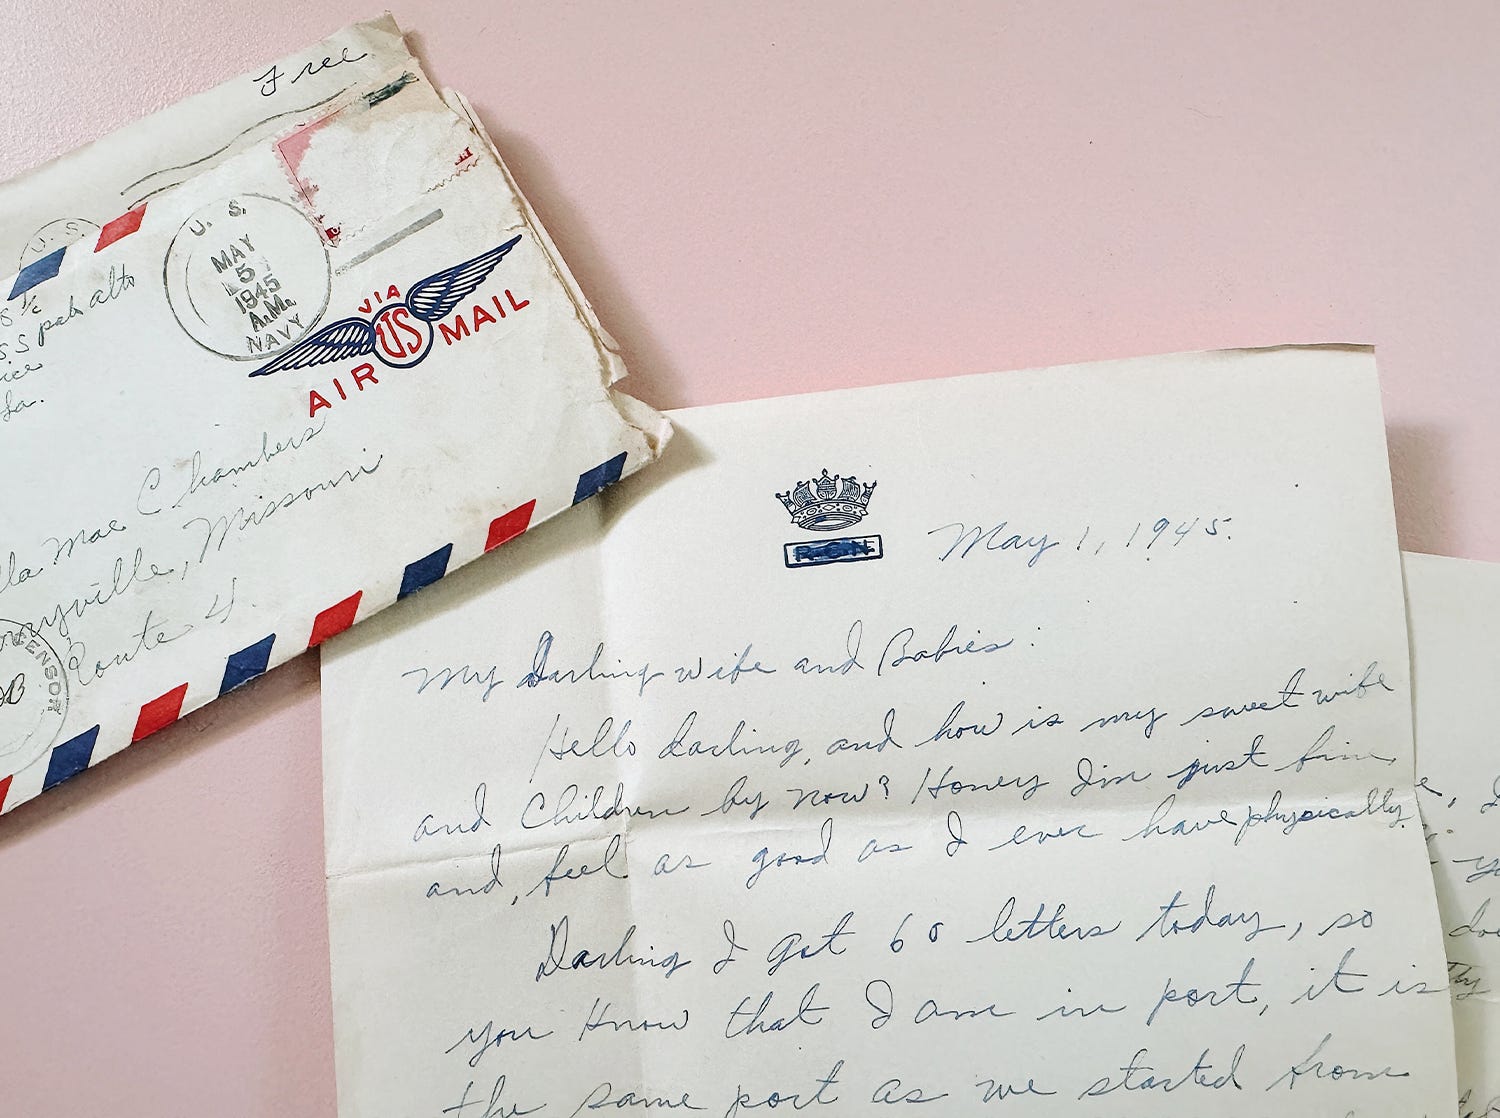 Free
U. S.
U. S.
MAY
5
1945
A.M.
NAVY
VIA
US
AIR MAIL
alto
Mae Chambers
Missouri
Route 4.
CENSOR
May 1, 1945.
My Darling wife and Babies:
Hello darling, and how is my sweet wife
and Children by now? Honey I'm just fine
and, feel as good as I ever have physically.
Darling I got 60 letters today, so
you Know that I am in port, it is
the same port as we started from